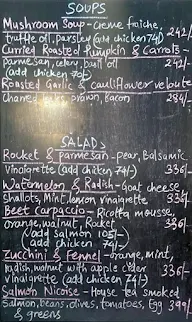 SOUPS
Mushroom Soup - creme fraiche,
truffle oil, parsley (add chicken 74) 242/-
Curried Roasted Pumpkin & Carrots -
parmesan, celery, basil oil 242/-
(add chicken 70/-)
Roasted Garlic & cauliflower veloute
Chared baby prawn, bacon 284/-
SALADS
Rocket & parmesan - pear, Balsamic
Vinaigrette (add chicken 74/-) 336/-
Watermelon & Radish - Goat cheese
shallots, Mint, lemon vinaigrette 336/-
Beet carpaccio - Ricotta mousse,
orange, walnut, Rocket 336/-
(add Salmon 105/-)
add chicken 74/-)
Zucchini & Fennel - orange, mint,
radish, walnut with apple cider 336/-
Vinaigrette (add chicken 74/-)
Salmon Nicoise - House tea smoked
Salmon, beans, olives, tomatoes, Egg 399/-
& greens